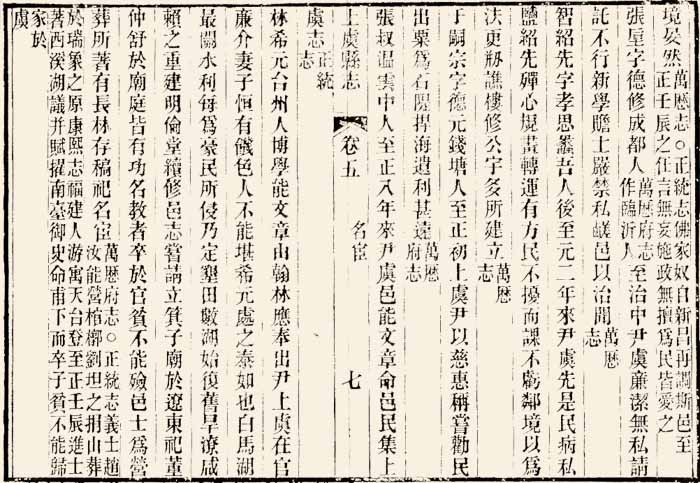 境晏然萬厯志○正統志佛家奴自新昌再調斯邑至正壬辰之任言無妄施政無擅爲民皆愛之
張垕字德修成都人萬厯府志作臨沂人至治中尹虞廉潔無私請
託不行新學贍士嚴禁私鹺邑以治聞萬厯志
智紹先字孝思蠡吾人後至元二年來尹虞先是民病私
鹽紹先殫心規畫轉運有方民不擾而課不虧鄰境以爲
法更剏譙樓修公宇多所建立萬厯志
于嗣宗字德元錢塘人至正初上虞尹以慈惠稱嘗勸民
出粟爲石隄捍海遺利甚遠萬厯府志
張叔温雲中人至正八年來尹虞邑能文章命邑民集上
上虞縣志 卷五 名宦 七
虞志正統志
林希元台州人博學能文章由翰林應奉出尹上虞在官
廉介妻子恒有饑色人不能堪希元處之泰如也白馬湖
最關水利每爲豪民所侵乃定墾田數湖始復舊旱潦咸
賴之重建明倫堂續修邑志嘗請立箕子廟於遼東祀董
仲舒於廟庭皆有功名教者卒於官貧不能殮邑士爲營
葬所著有長林存稿祀名宦萬厯府志○正統志義士趙汝能營棺槨劉坦之捐山葬
於瑞象之原康熙志福建人游寓天台登至正壬辰進士著西溪湖議并賦擢南臺御史命甫下而卒子貧不能歸
家於虞